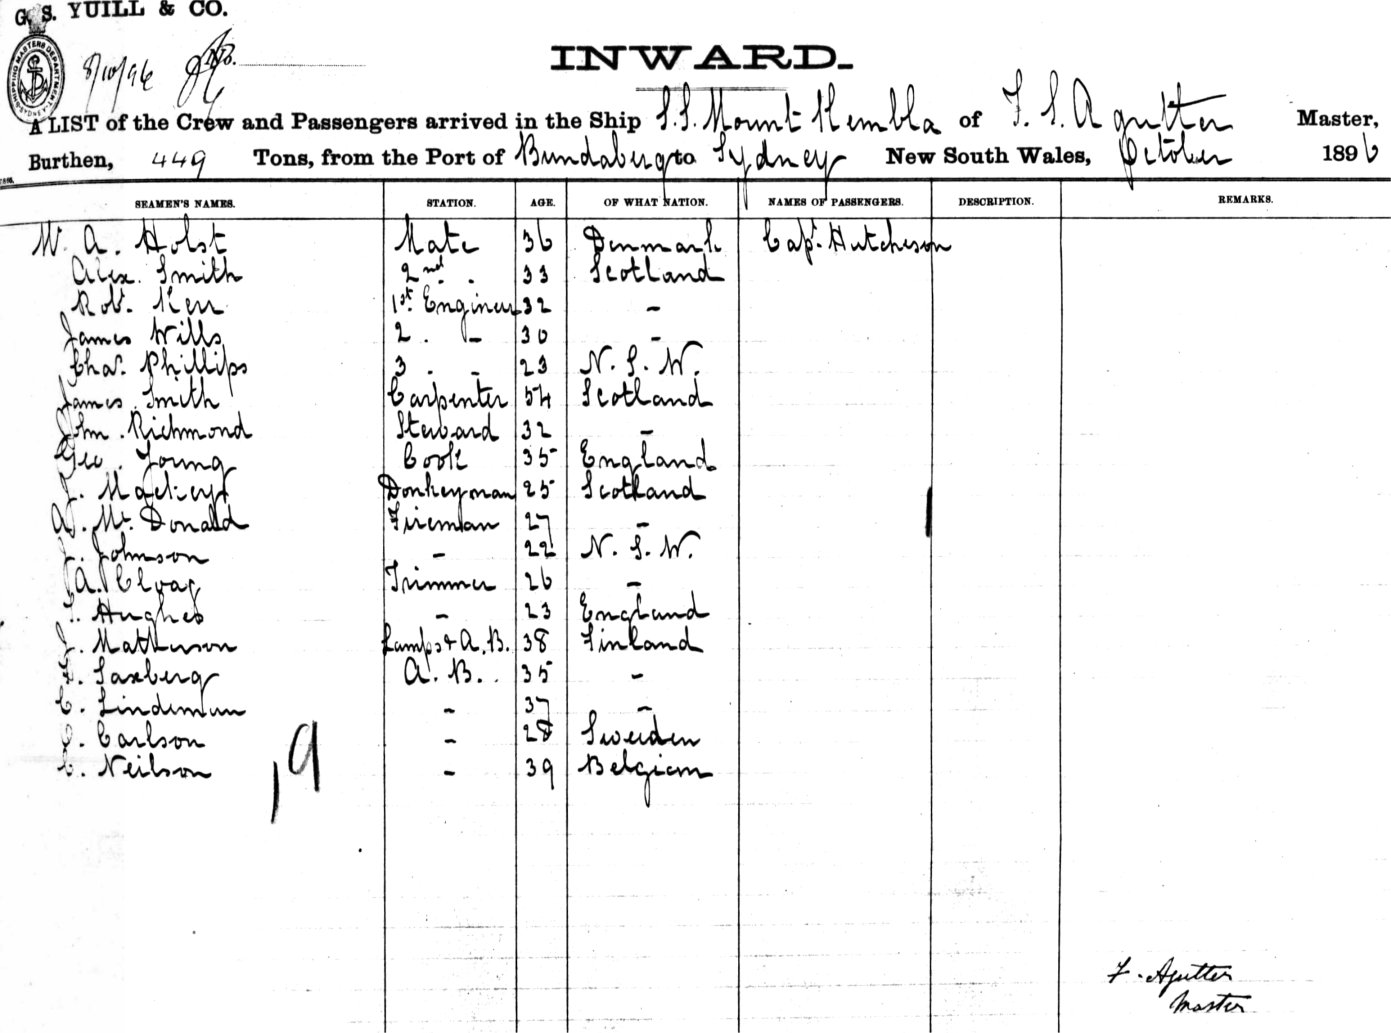 G. S. YUILL & CO.
SHIPPING MASTERS DEPARTMENT SYDNEY
8/10/96
INWARD.
A LIST of the Crew and Passengers arrived in the Ship S.S. Mount Kembla of F. S. Agutter Master,
Burthen, 449 Tons, from the Port of Bundaberg to Sydney New South Wales, October 1896
SEAMEN'S NAMES. STATION. AGE. OF WHAT NATION. NAMES OF PASSENGERS. DESCRIPTION. REMARKS.
W. A. Holst Mate 36 Denmark Capt. Hutcheson
Alex. Smith 2nd . 33 Scotland
Robt. Kerr 1st. Engineer 32 –
James Wills 2 . – 30 –
Chas. Phillips 3 . – 23 N. S. W.
James Smith Carpenter 54 Scotland
John Richmond Steward 32 –
Geo. Young Cook 35 England
J. Mackey Donkeyman 25 Scotland
A. Mc. Donald Fireman 27 –
J. Johnson – 22 N. S. W.
A. Cloag Trimmer 26 –
S. Hughes – 23 England
J. Matherson Lamps & A. B. 38 Finland
Saxberg A. B. 35 –
C. Lindeman – 37 –
C. Carlson – 28 Sweden
C. Neilson – 39 Belgium
19
F. Agutter
Master